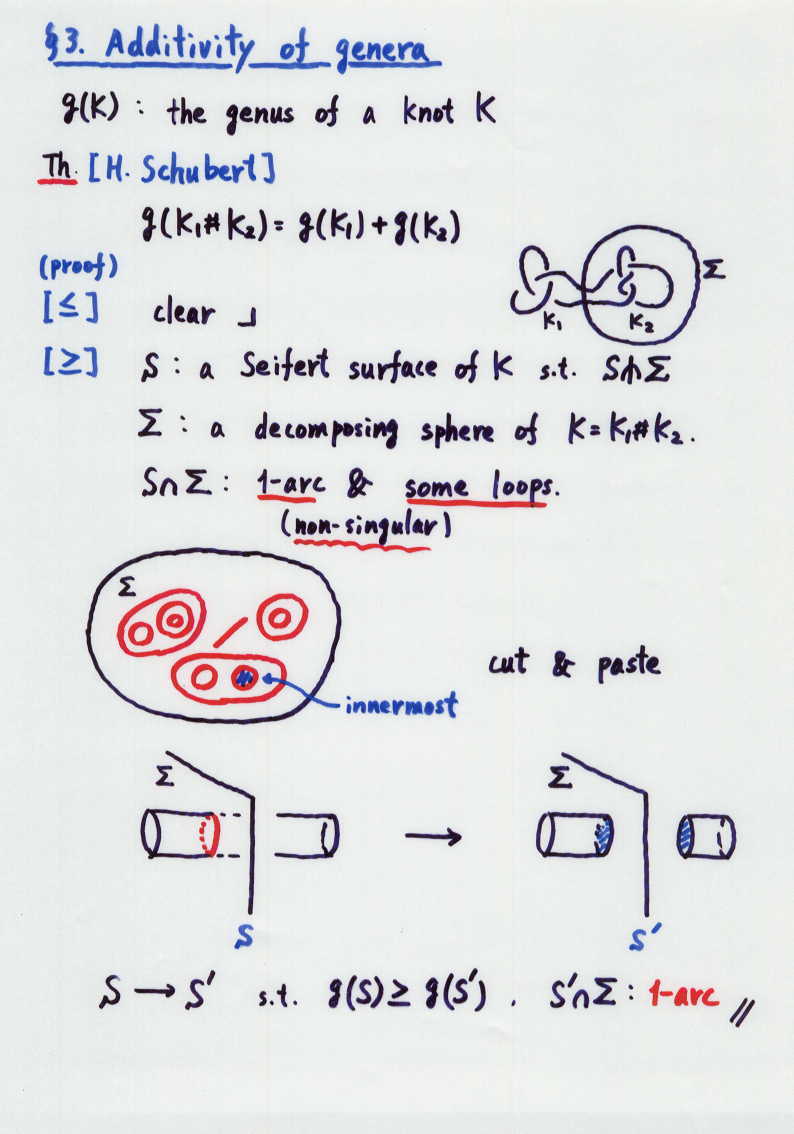 §3. Additivity of genera
g(K) : the genus of a knot K
Th. [H. Schubert]
g(K₁#K₂) = g(K₁) + g(K₂)
(proof)
Σ
K₁ K₂
[≤] clear ┘
[≥] S : a Seifert surface of K s.t. S⋔Σ
Σ : a decomposing sphere of K = K₁#K₂.
S∩Σ : 1-arc & some loops.
(non-singular)
Σ
cut & paste
innermost
Σ → Σ
S S′
S → S′ s.t. g(S) ≥ g(S′) . S′∩Σ : 1-arc //